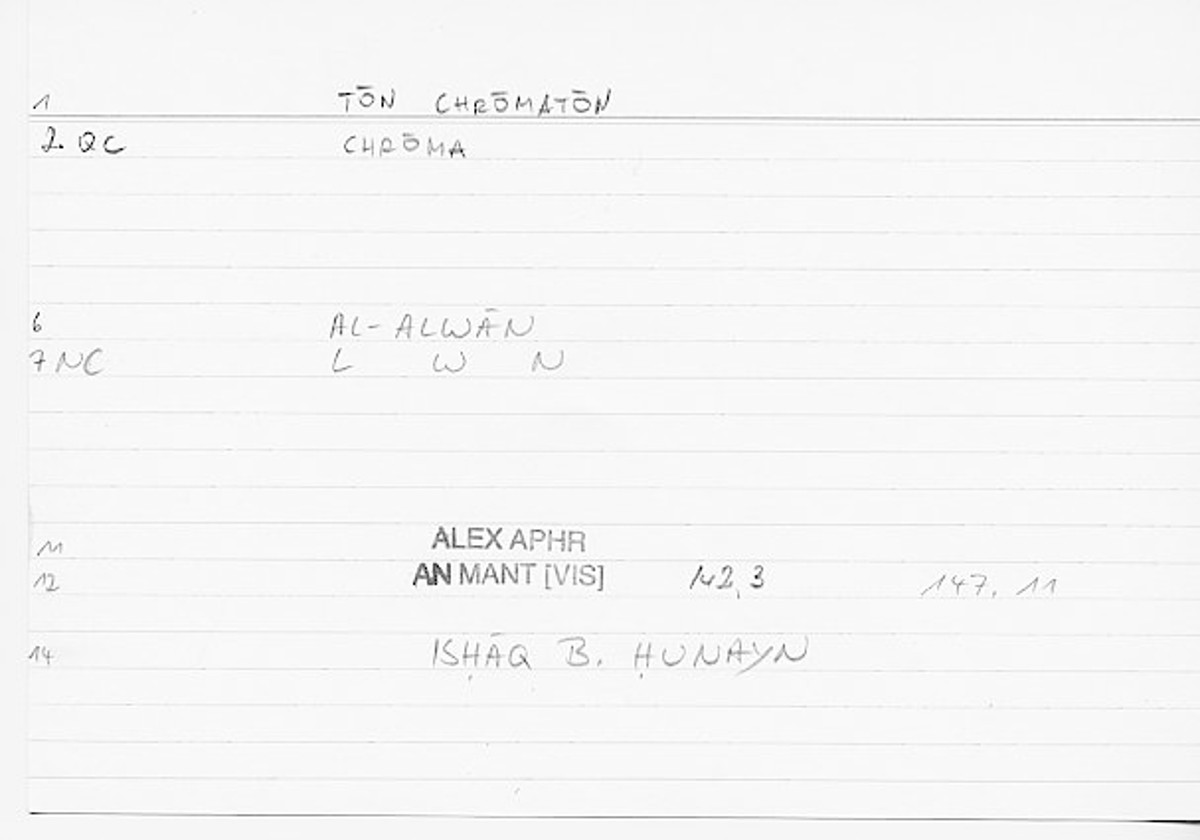 1 TŌN CHRŌMATŌN
2. QC CHRŌMA
6 AL-ALWĀN
7 NC L W N
11 ALEX APHR
12 AN MANT [VIS] 142,3 147, 11
14 ISḤĀQ B. ḤUNAYN